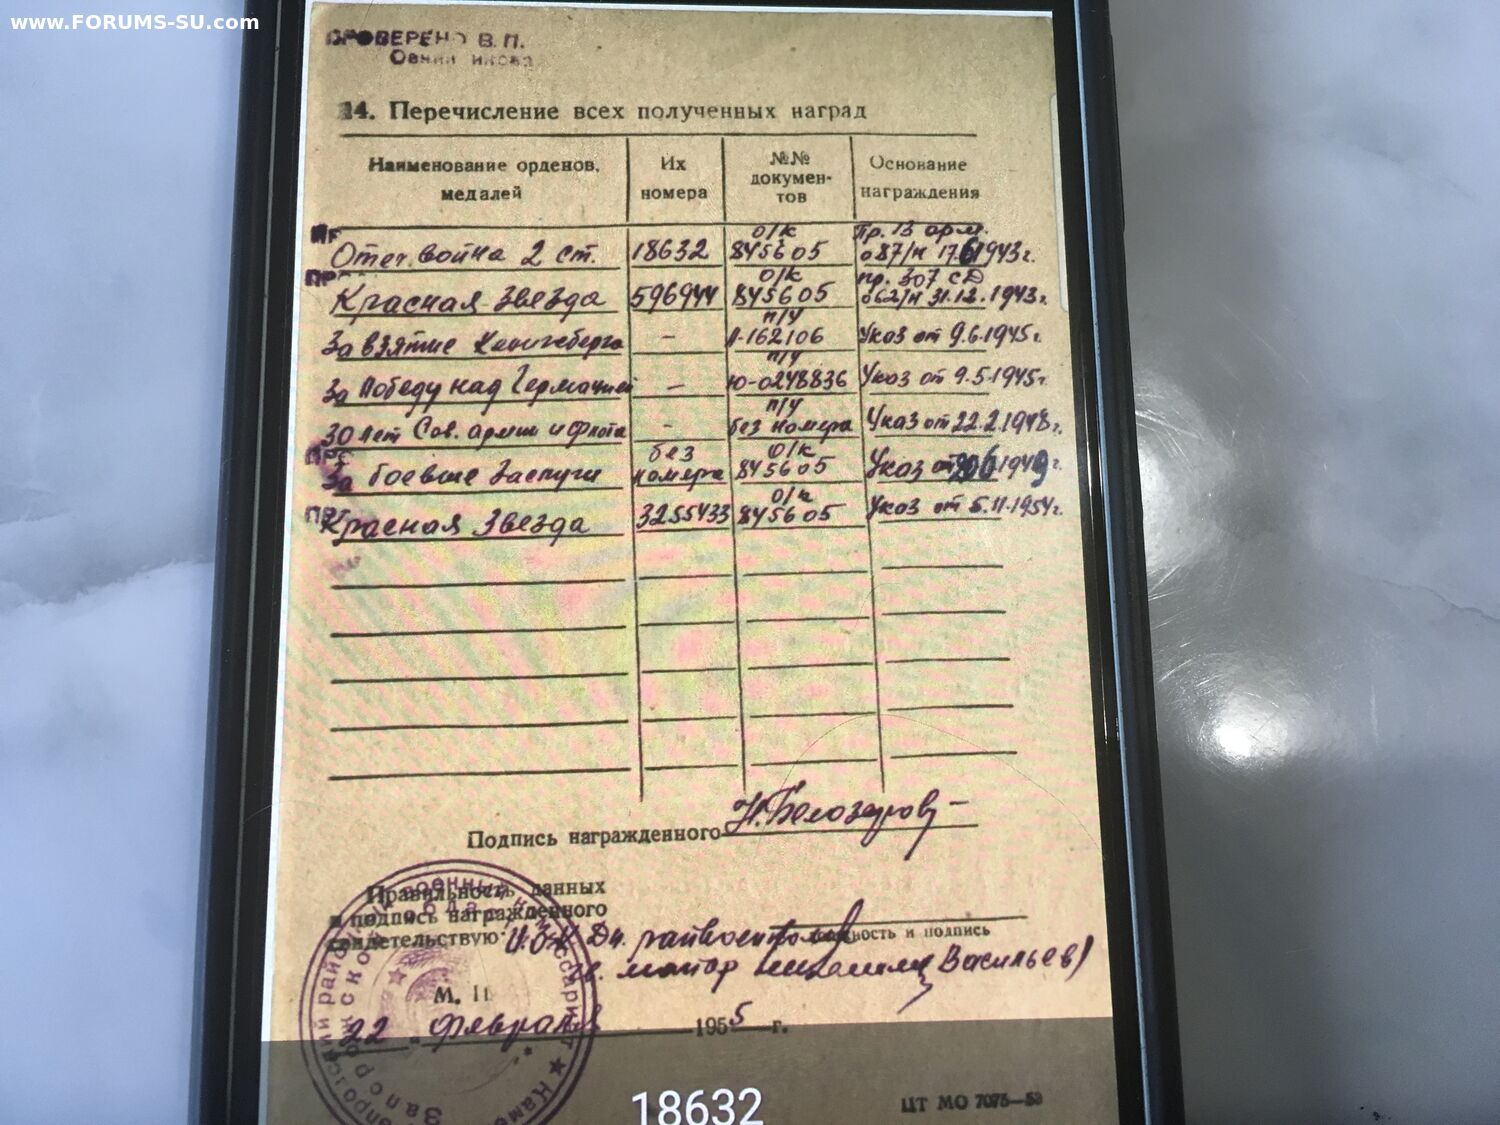 www.FORUMS-SU.com
ПРОВЕРЕНО В. П.
14. Перечисление всех полученных наград
Наименование орденов, медалей
Их номера
№№ докумен-
тов
Основание награждения
Отеч. война 2 ст. 18632 о/к 845605 Пр. 13 арм. 087/н 17.6.1943г.
Красная Звезда 596944 о/к 845605 пр. 307 сд 062/н 31.12.1943г.
За взятие Кенигсберга – п/у А-162106 Указ от 9.6.1945г.
За победу над Германией – п/у Ю-0248836 Указ от 9.5.1945г.
30 лет Сов. армии и флота – п/у без номера Указ от 22.2.1948г.
За боевые заслуги без номера о/к 845605 Указ от 1949г.
Красная Звезда 3255433 о/к 845605 Указ от 5.11.1954г.
Подпись награжденного Н. Белозеров
Правильность данных
и подпись награжденного
свидетельствую:
должность и подпись
гв. майор Васильев)
М. П.
22 февраля 1955 г.
18632
ЦТ МО 7075—53